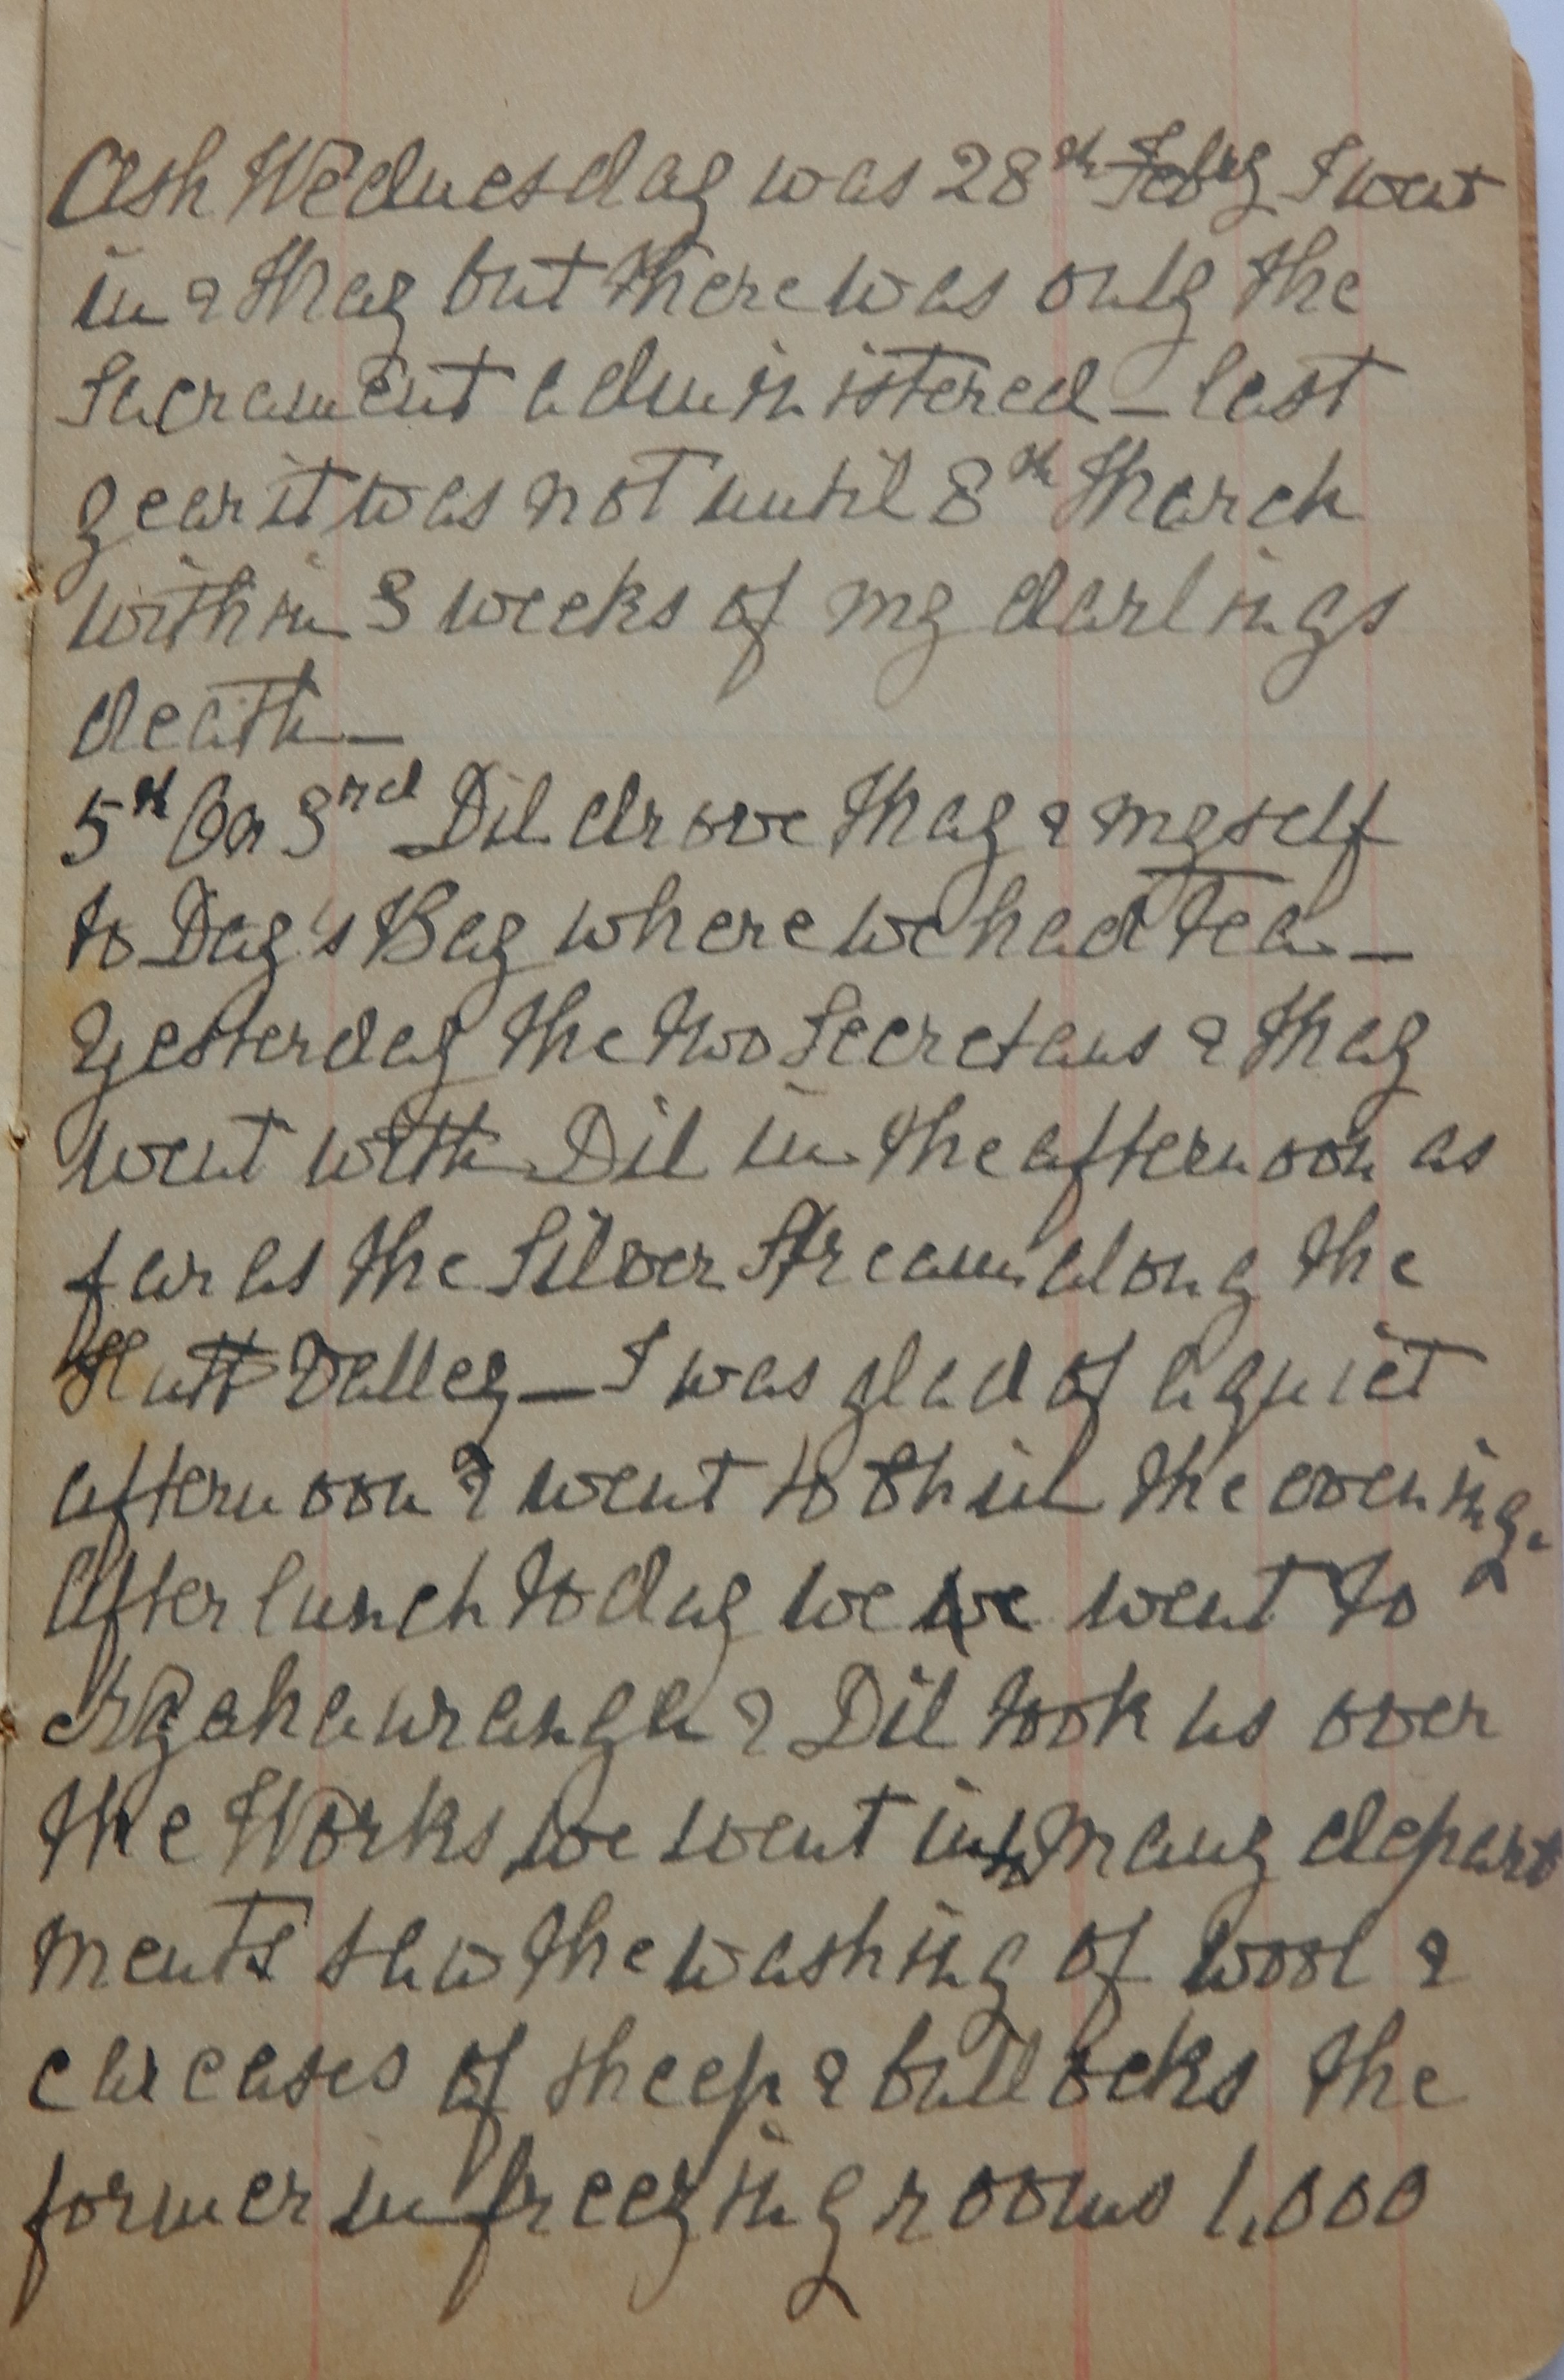 Ash Wednesday was 28th Feby I went
in & May but there was only the
Sacrament administered – last
year it was not until 8th March
within 3 weeks of my darlings
death –
5th On 3rd Dil drove May & myself
to Day's Bay where we had tea –
Yesterday the two Secretans & May
went with Dil in the afternoon as
far as the Silver Stream along the
Hutt Valley – I was glad of a quiet
afternoon & went to Ch in the evening.
After lunch today we we went to
Ngahauranga & Dil took us over
the Works, we went into many depart
ments saw the washing of wool &
carcases of sheep & bullocks the
former in freezing rooms 1,000